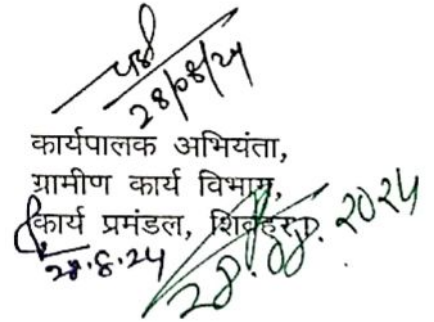 28/08/24
कार्यपालक अभियंता,
ग्रामीण कार्य विभाग,
कार्य प्रमंडल, शिवहर।
28.8.24
28.08.2024